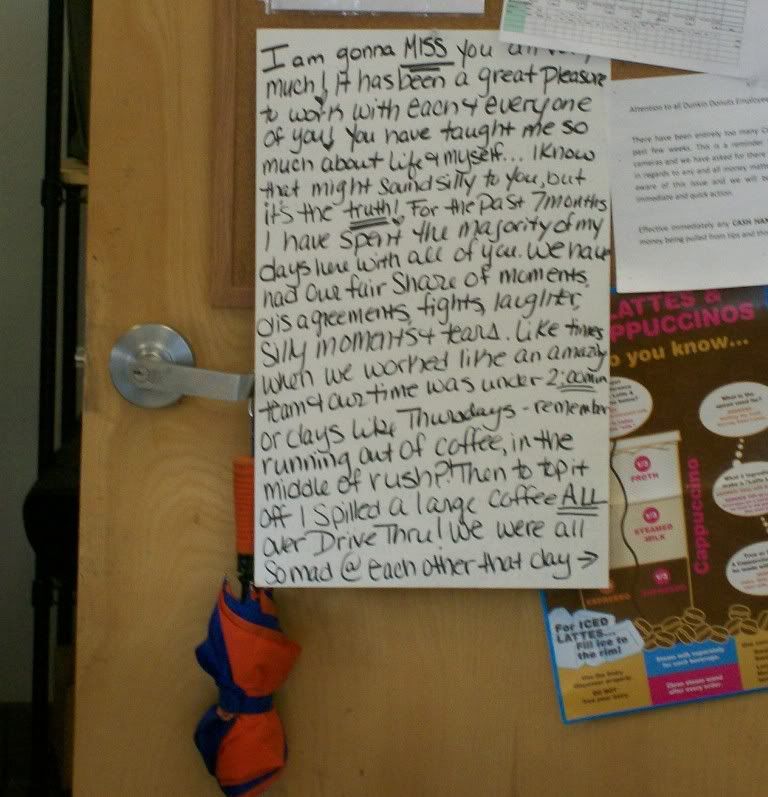 I am gonna MISS you all very
much! it has been a great pleasure
to work with each & everyone
of you! You have taught me so
much about life & myself... I know
that might sound silly to you, but
it's the truth! For the past 7 months
I have spent the majority of my
days here with all of you. We have
had our fair share of moments,
disagreements, fights, laughter,
silly moments & tears. Like times
when we worked like an amazing
team & our time was under 2:00min
or days like Thursdays - remember
running out of coffee, in the
middle of rush? Then to top it
off I spilled a large coffee ALL
over Drive Thru! We were all
so mad @ each other that day →
Attention to all Dunkin Donuts Employee
There have been entirely too many
past few weeks. This is a reminder
cameras and we have asked for there
in regards to any and all money
aware of this issue and we will be
immediate and quick action.
Effective immediately any CASH
money being pulled from tips and
LATTES &
PPUCCINOS
o you know...
1/3
FROTH
1/3
STEAMED
MILK
1/3
ESPRESSO
Cappuccino
For ICED
LATTES...
Fill ice to
the rim!